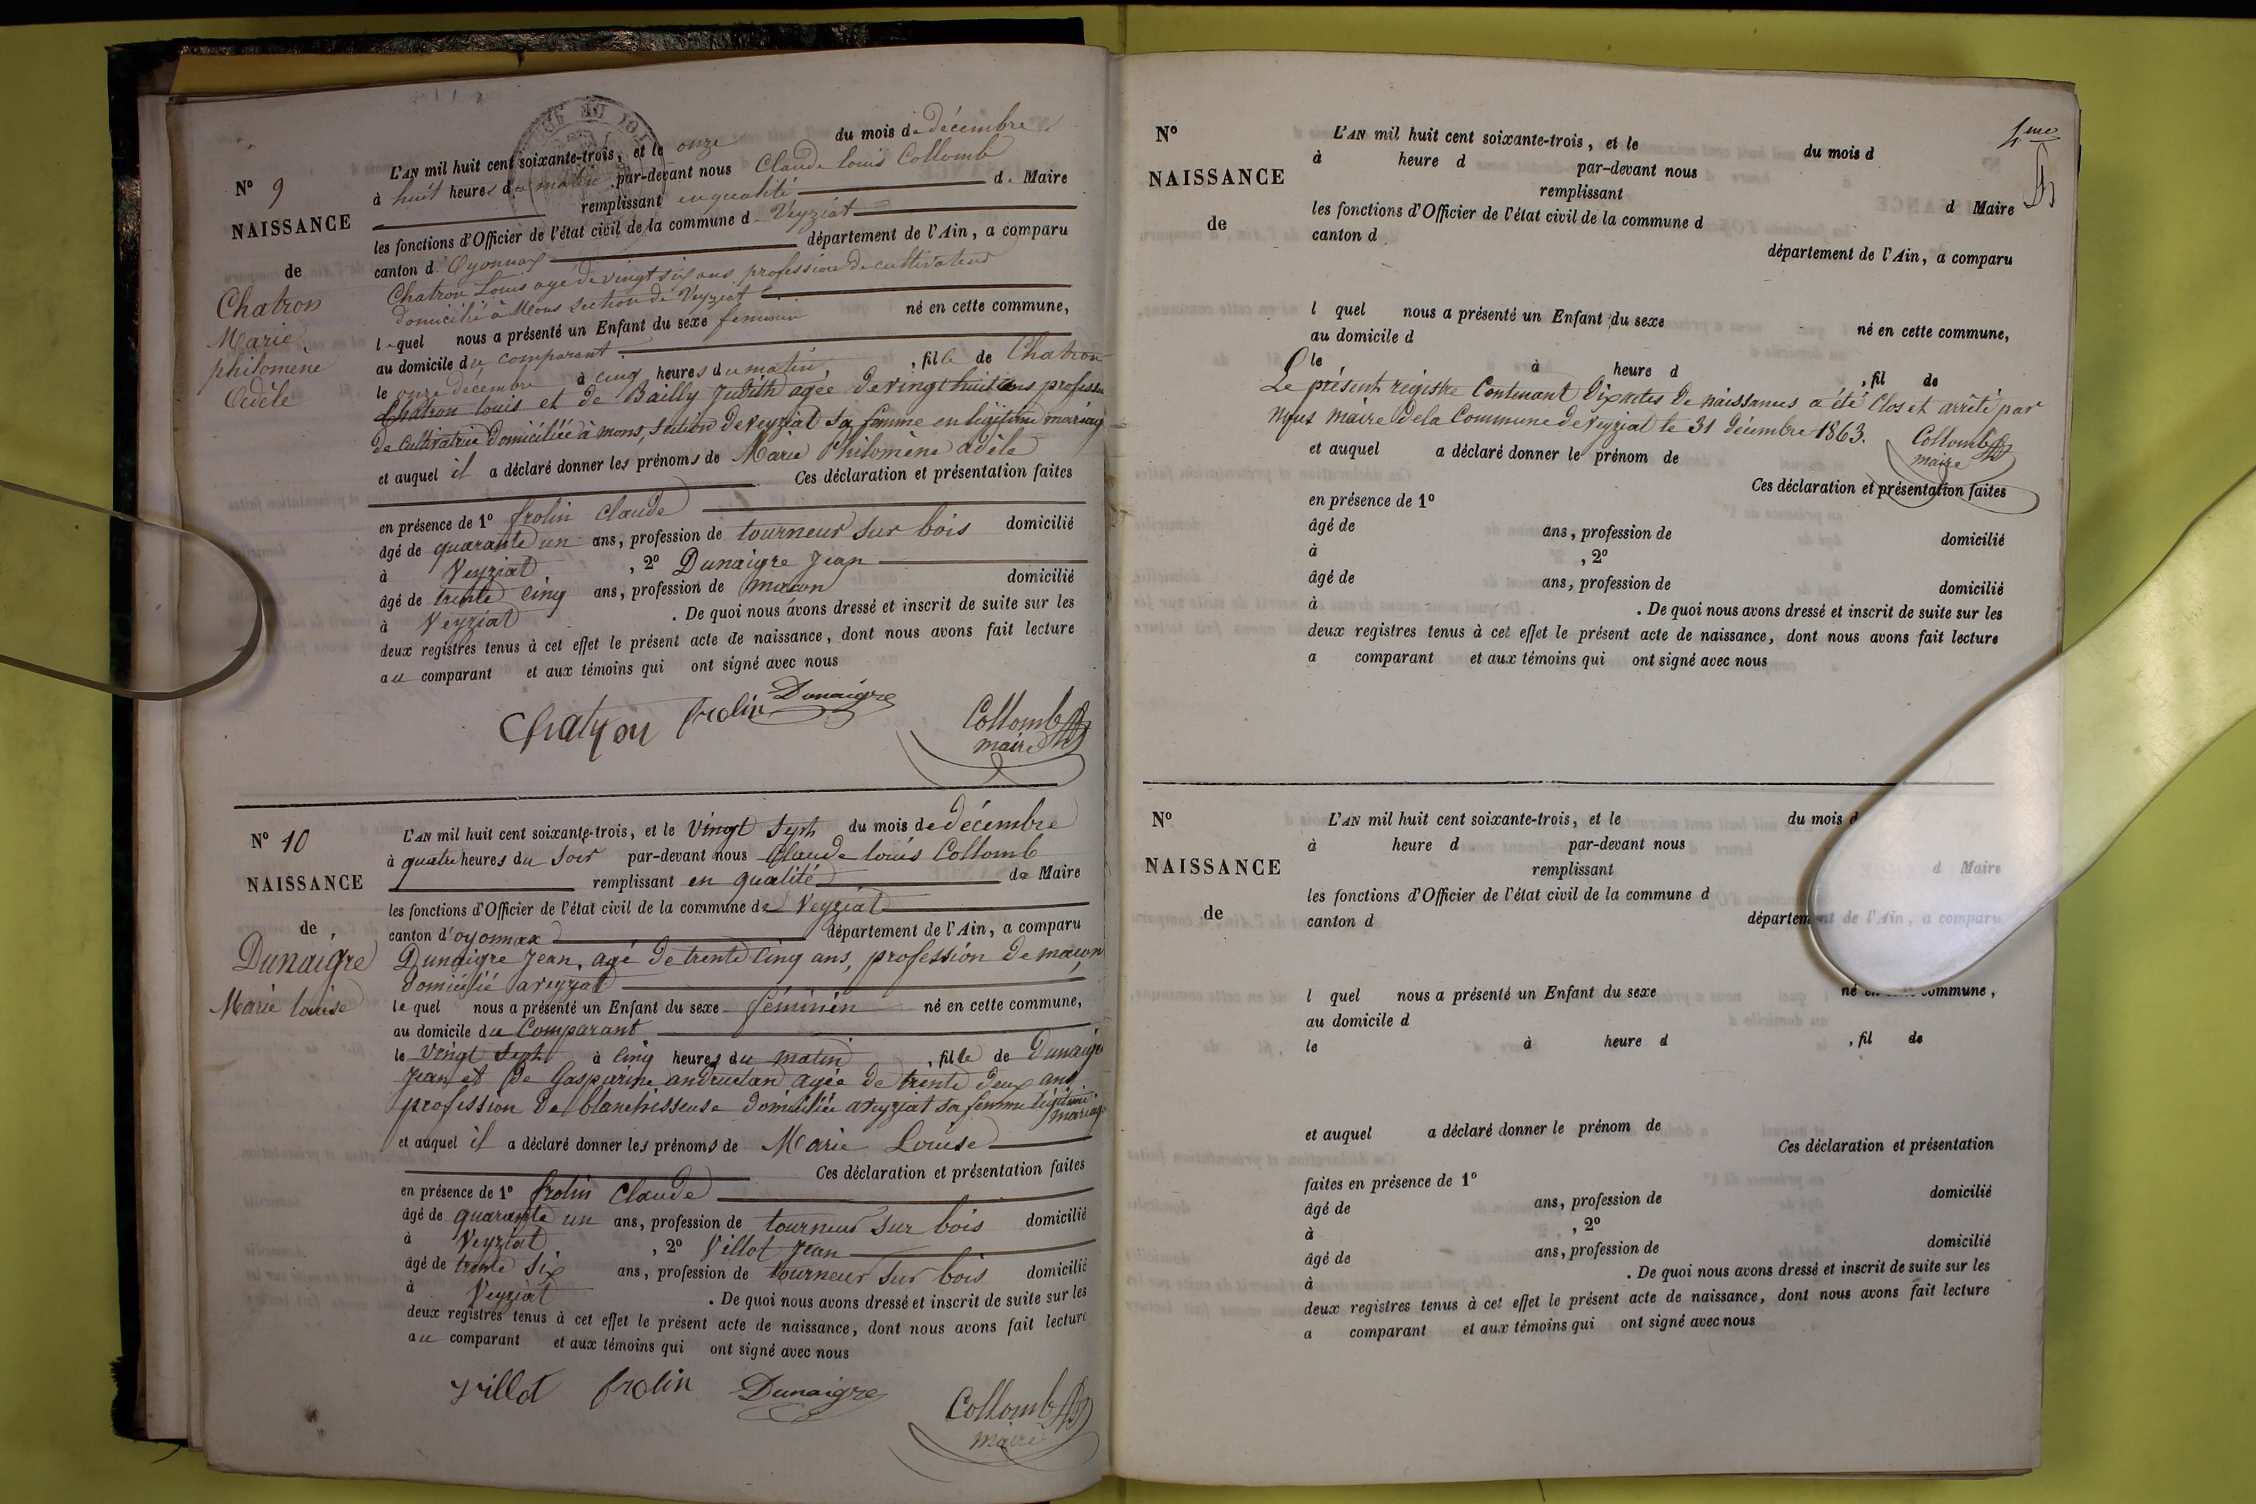 N° 9
NAISSANCE
de
Chatron
Marie
philomène
Adèle
L'AN mil huit cent soixante-trois, et le onze du mois de décembre
à huit heures du matin par-devant nous Claude louis Collomb
remplissant en qualité de Maire
les fonctions d'Officier de l'état civil de la commune d Veyziat
canton d'Oyonnax département de l'Ain, a comparu
Chatron Louis agé de vingt six ans profession de cultivateur
domicilié à Mons section de Veyziat
lequel nous a présenté un Enfant du sexe feminin né en cette commune,
au domicile du comparant
le onze décembre à cinq heures du matin, fille de Chatron
Chatron louis et de Bailly Judith agée de vingt huit ans profession
de cultivatrice domiciliée à mons, section de veyziat sa femme en légitime mariage
et auquel il a déclaré donner les prénoms de Marie Philomène adèle
Ces déclaration et présentation faites
en présence de 1° frolin Claude
âgé de quarante un ans, profession de tourneur sur bois domicilié
à Veyziat, 2° Dunaigre Jean
âgé de trente cinq ans, profession de macon domicilié
à Veyziat. De quoi nous avons dressé et inscrit de suite sur les
deux registres tenus à cet effet le présent acte de naissance, dont nous avons fait lecture
au comparant et aux témoins qui ont signé avec nous
Chatron frolin Dunaigre Collomb
maire
N° 10
NAISSANCE
de
Dunaigre
Marie louise
L'AN mil huit cent soixante-trois, et le vingt sept du mois de décembre
à quatre heures du soir par-devant nous Claude louis Collomb
remplissant en qualité de Maire
les fonctions d'Officier de l'état civil de la commune de Veyziat
canton d'oyonnax département de l'Ain, a comparu
Dunaigre Jean, agé de trente cinq ans, profession de macon
domicilié a veyziat
lequel nous a présenté un Enfant du sexe féminin né en cette commune,
au domicile du Comparant
le vingt sept à cinq heures du matin, fille de Dunaigre
Jean et de Gasparine andruetan agée de trente deux ans
profession de blanchisseuse domiciliée a veyziat sa femme légitime
mariage
et auquel il a déclaré donner les prénoms de Marie Louise
Ces déclaration et présentation faites
en présence de 1° frolin Claude
âgé de quarante un ans, profession de tourneur sur bois domicilié
à Veyziat, 2° Villot Jean
âgé de trente six ans, profession de tourneur sur bois domicilié
à Veyziat. De quoi nous avons dressé et inscrit de suite sur les
deux registres tenus à cet effet le présent acte de naissance, dont nous avons fait lecture
au comparant et aux témoins qui ont signé avec nous
villot frolin Dunaigre Collomb
maire
4me
N°
NAISSANCE
de
L'AN mil huit cent soixante-trois, et le du mois d
à heure d par-devant nous
remplissant d Maire
les fonctions d'Officier de l'état civil de la commune d
canton d
département de l'Ain, a comparu
l quel nous a présenté un Enfant du sexe né en cette commune,
au domicile d
le à heure d, fil de
Le présent registre Contenant Dix actes de naissances a été Clos et arrêté par
Nous maire de la Commune de Veyziat le 31 décembre 1863. Collomb
maire
et auquel a déclaré donner le prénom de
Ces déclaration et présentation faites
en présence de 1°
âgé de ans, profession de domicilié
à, 2°
âgé de ans, profession de domicilié
à. De quoi nous avons dressé et inscrit de suite sur les
deux registres tenus à cet effet le présent acte de naissance, dont nous avons fait lecture
a comparant et aux témoins qui ont signé avec nous
N°
NAISSANCE
de
L'AN mil huit cent soixante-trois, et le du mois d
à heure d par-devant nous
remplissant d Maire
les fonctions d'Officier de l'état civil de la commune d
canton d département de l'Ain, a comparu
l quel nous a présenté un Enfant du sexe né en cette commune,
au domicile d
le à heure d, fil de
et auquel a déclaré donner le prénom de
Ces déclaration et présentation
faites en présence de 1°
âgé de ans, profession de domicilié
à, 2°
âgé de ans, profession de domicilié
à. De quoi nous avons dressé et inscrit de suite sur les
deux registres tenus à cet effet le présent acte de naissance, dont nous avons fait lecture
a comparant et aux témoins qui ont signé avec nous